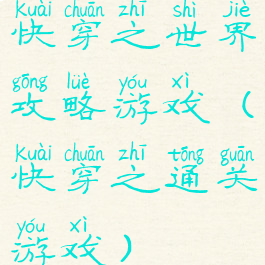 kuài chuān zhī shì jiè
快穿之世界
gōng lüè yóu xì
攻略游戏（
kuài chuān zhī tōng guān
快穿之通关
yóu xì
游戏）